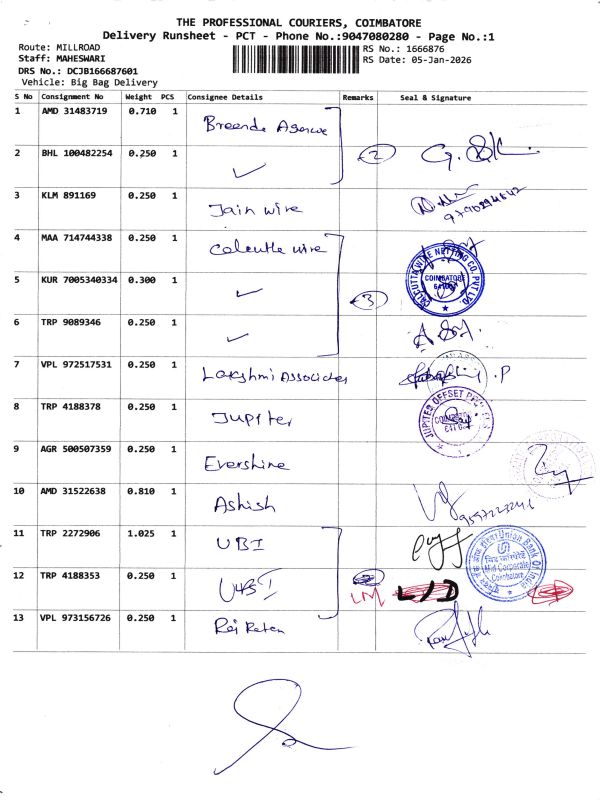 THE PROFESSIONAL COURIERS, COIMBATORE
Delivery Runsheet - PCT - Phone No.:9047080280 - Page No.:1
Route: MILLROAD
Staff: MAHESWARI
DRS No.: DCJB166687601
Vehicle: Big Bag Delivery
RS No.: 1666876
RS Date: 05-Jan-2026
S No Consignment No Weight PCS Consignee Details Remarks Seal & Signature
1 AMD 31483719 0.710 1
2 BHL 100482254 0.250 1 ✓ 2
3 KLM 891169 0.250 1 Jain wire
4 MAA 714744338 0.250 1 Calcutta wire
5 KUR 7005340334 0.300 1 ✓ 3
CALCUTTA WIRE NETTING CO. PVT LTD
COIMBATORE
6 TRP 9089346 0.250 1 ✓
7 VPL 972517531 0.250 1 Lakshmi Associates
8 TRP 4188378 0.250 1 Jupiter
JUPITER OFFSET
9 AGR 500507359 0.250 1 Evershine
10 AMD 31522638 0.810 1 Ashish
11 TRP 2272906 1.025 1 UBI
Union Bank Of India
Mid Corporate
Coimbatore
12 TRP 4188353 0.250 1 UBI LM L/D
13 VPL 973156726 0.250 1 Raj Ratan